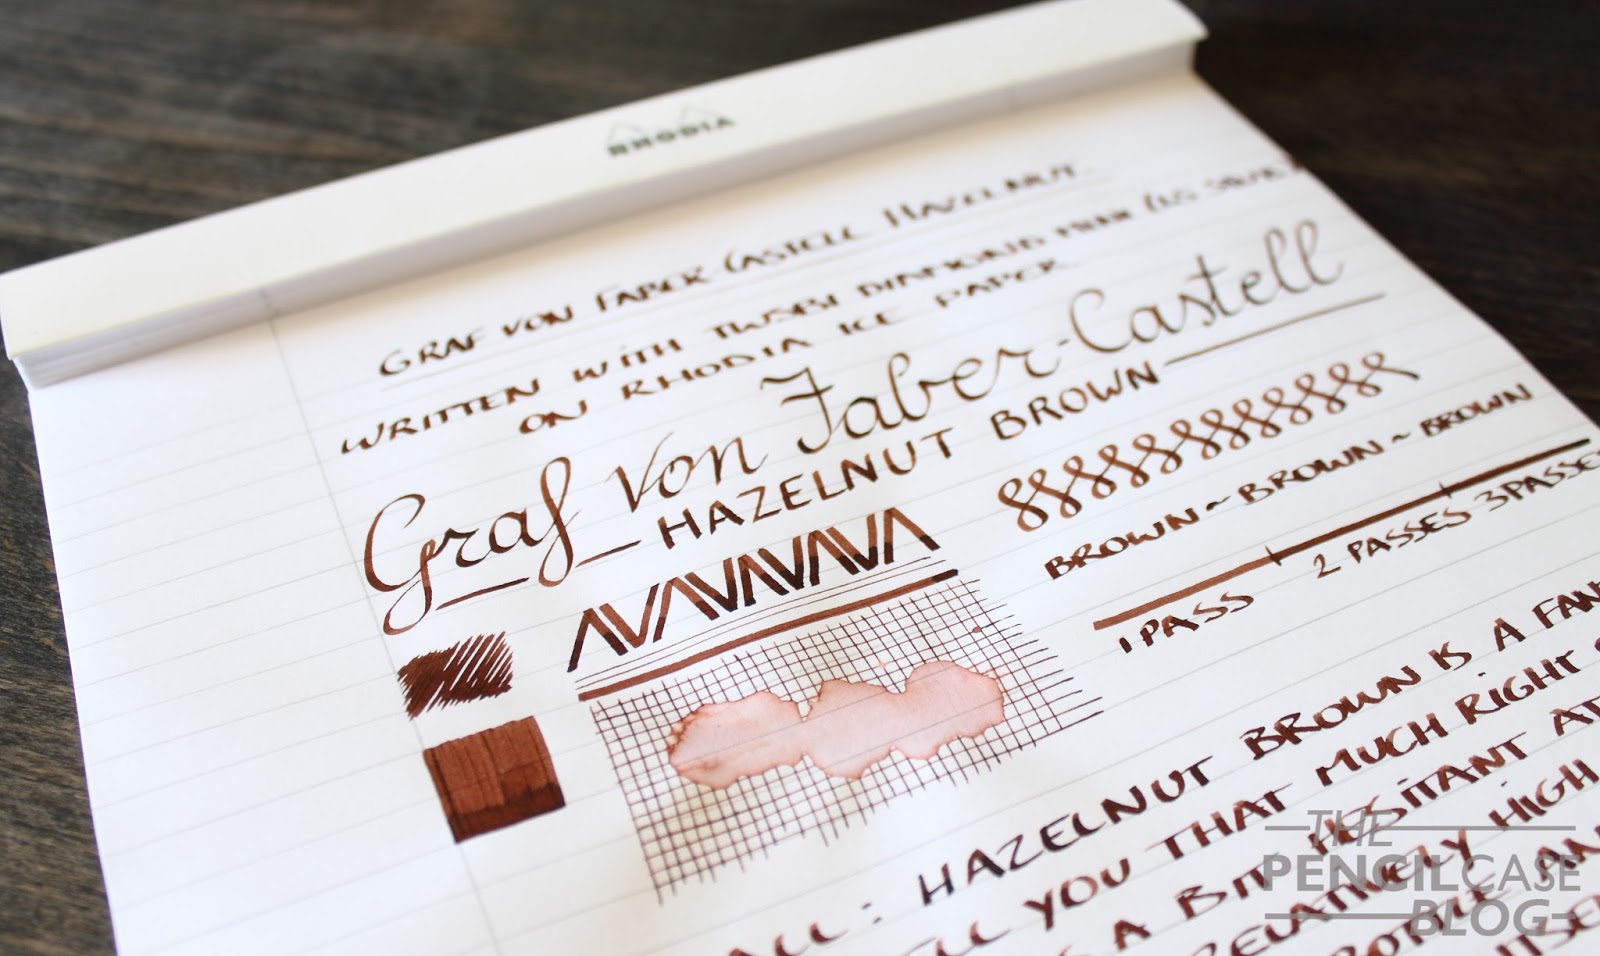 RHODIA
GRAF VON FABER CASTELL HAZELNUT.
WRITTEN WITH TWSBI DIAMOND MINI (1.5 STUB)
ON RHODIA ICE PAPER
Graf von Faber-Castell
HAZELNUT BROWN
BROWN ~ BROWN ~ BROWN
1 PASS 2 PASSES 3 PASSES
ALL: HAZELNUT BROWN IS A FAN
YOU THAT MUCH RIGHT
A BIT HESITANT AT
RELATIVELY HIGH
BOTTLE AN
ITSE
THE
PENCILCASE
BLOG